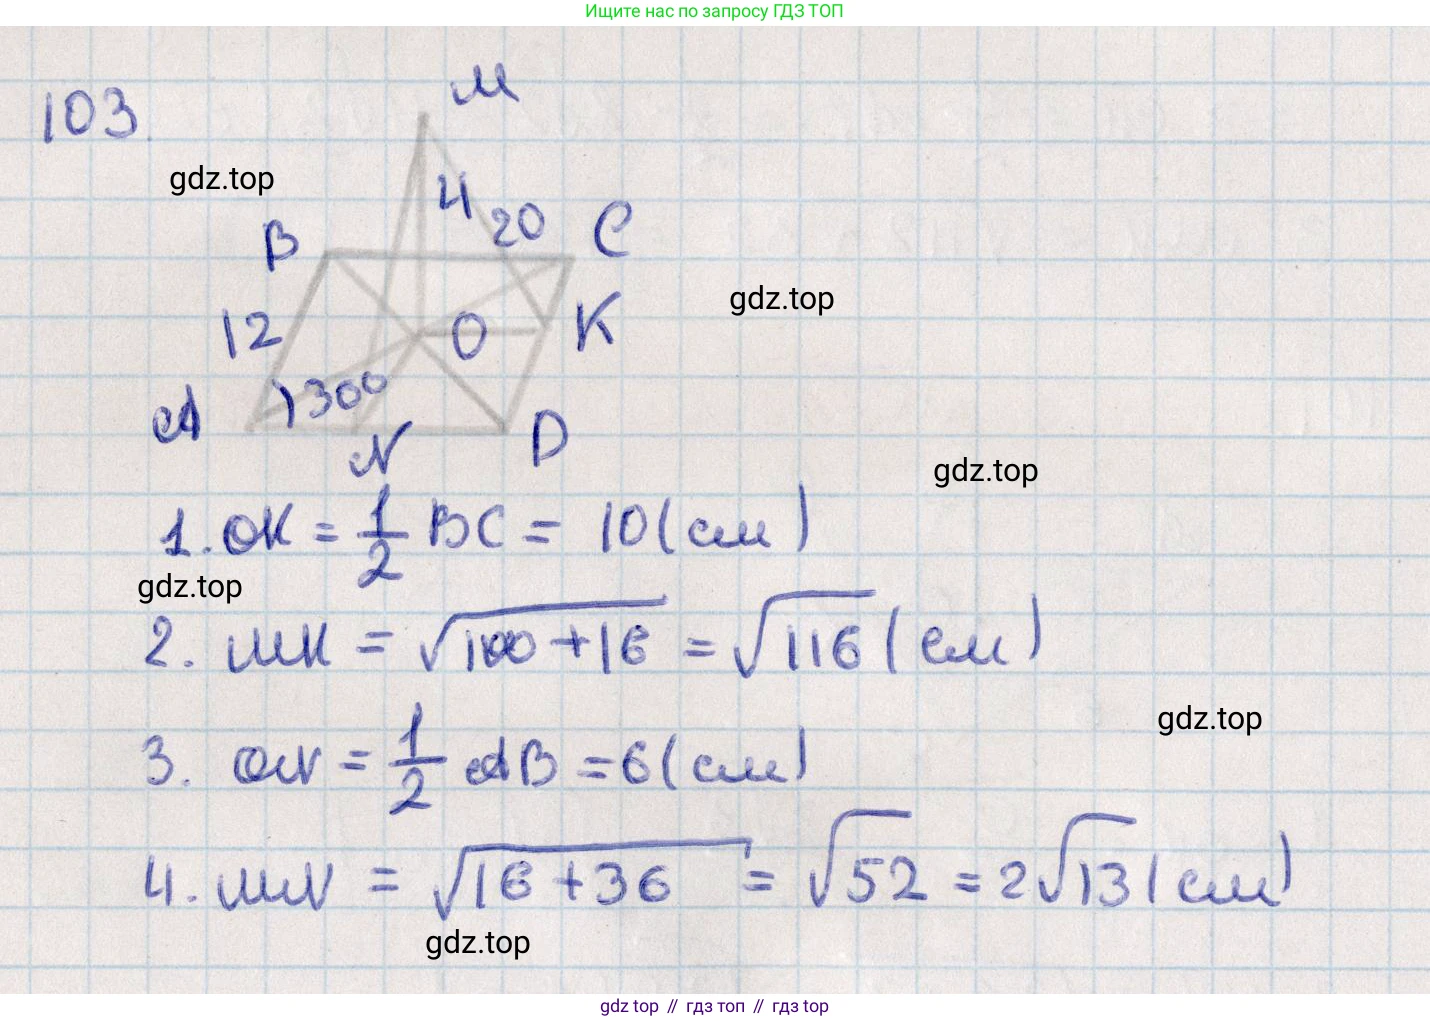 Ищите нас по запросу ГДЗ ТОП
103.
M
gdz.top
4
20
B
C
gdz.top
12
O
K
A
30°
N
D
gdz.top
1. OK = 1/2 BC = 10 (см)
gdz.top
2. MK = √100 + 16 = √116 (см)
gdz.top
3. ON = 1/2 AB = 6 (см)
4. MN = √16 + 36 = √52 = 2√13 (см)
gdz.top
gdz top // гдз топ // gdz top